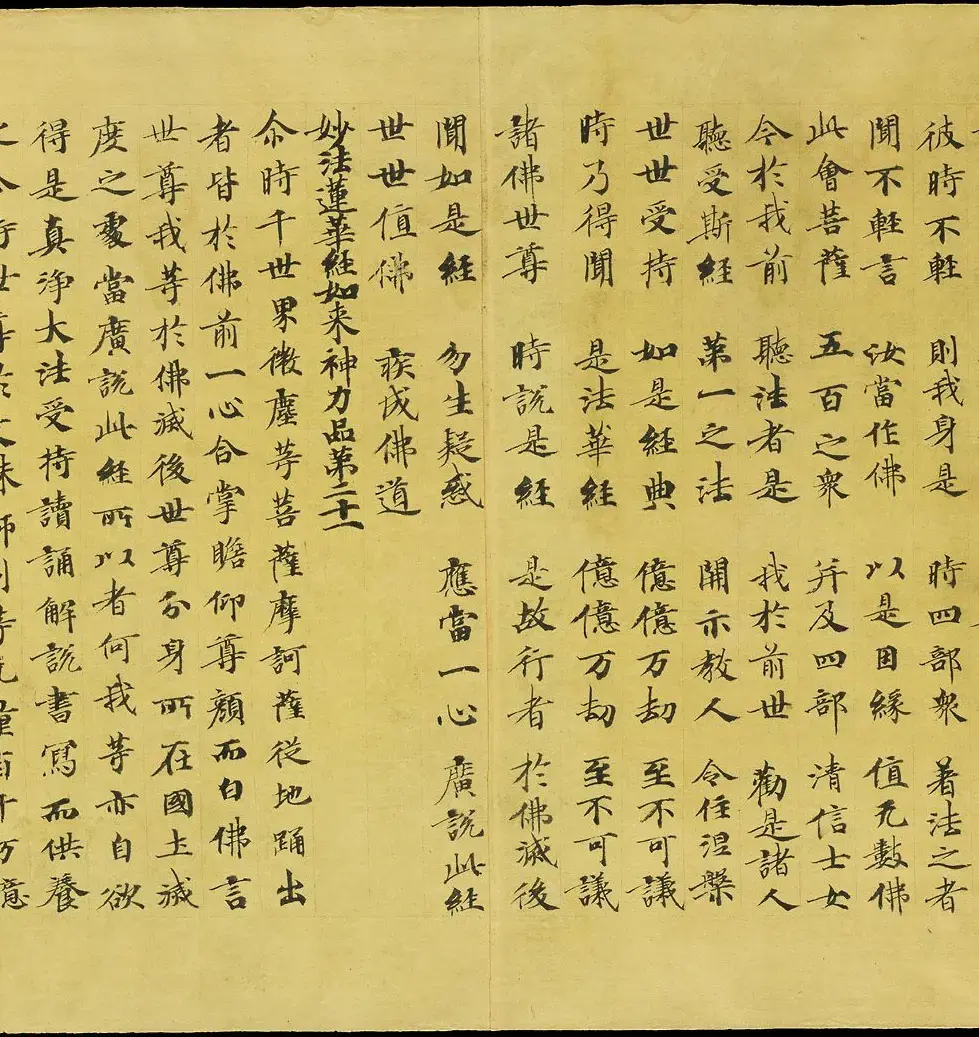 彼時不輕 則我身是 時四部衆 著法之者
聞不輕言 汝當作佛 以是因緣 值无數佛
此會菩薩 五百之衆 并及四部 清信士女
今於我前 聽法者是 我於前世 勸是諸人
聽受斯經 第一之法 開示教人 令住涅槃
世世受持 如是經典 億億万劫 至不可議
時乃得聞 是法華經 億億万劫 至不可議
諸佛世尊 時說是經 是故行者 於佛滅後
聞如是經 勿生疑惑 應當一心 廣說此經
世世值佛 疾成佛道
妙法蓮華經如来神力品第二十一
尒時千世界微塵等菩薩摩訶薩從地踊出
者皆於佛前一心合掌瞻仰尊顏而白佛言
世尊我等於佛滅後世尊分身所在國土滅
度之處當廣說此經所以者何我等亦自欲
得是真淨大法受持讀誦解說書寫而供養
世尊於文殊師利等无量百千万億